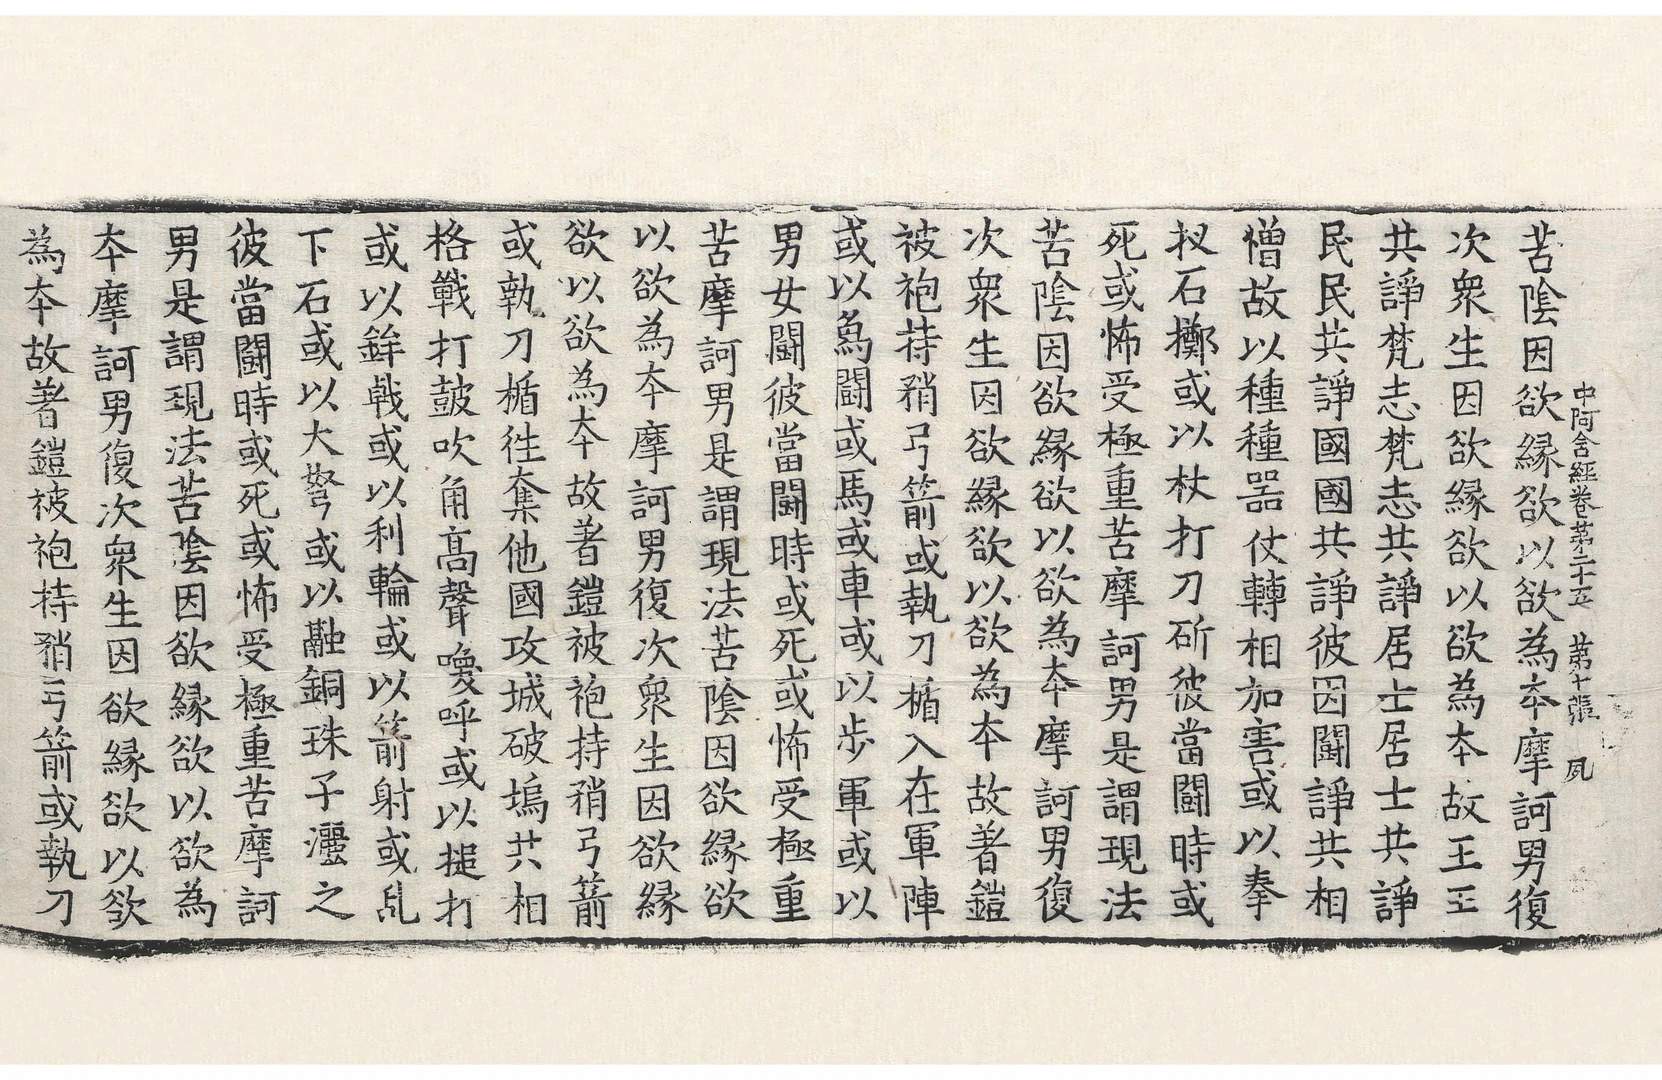 中阿含經卷苐二十五　苐十張　夙
苦陰因欲緣欲以欲為夲摩訶男復
次衆生因欲緣欲以欲為夲故王王
共諍梵志梵志共諍居士居士共諍
民民共諍國國共諍彼因鬪諍共相
憎故以種種器仗轉相加害或以拳
扠石擲或以杖打刀斫彼當鬪時或
死或怖受極重苦摩訶男是謂現法
苦陰因欲緣欲以欲為夲摩訶男復
次衆生因欲緣欲以欲為夲故著鎧
被袍持矟弓箭或執刀楯入在軍陣
或以鳥鬪或馬或車或以步軍或以
男女鬪彼當鬪時或死或怖受極重
苦摩訶男是謂現法苦陰因欲緣欲
以欲為夲摩訶男復次衆生因欲緣
欲以欲為夲故著鎧被袍持矟弓箭
或執刀楯徃奪他國攻城破塢共相
格戰打皷吹角高聲喚呼或以搥打
或以鉾戟或以利輪或以箭射或乱
下石或以大弩或以融銅珠子灑之
彼當鬪時或死或怖受極重苦摩訶
男是謂現法苦陰因欲緣欲以欲為
夲摩訶男復次衆生因欲緣欲以欲
為夲故著鎧被袍持矟弓箭或執刀